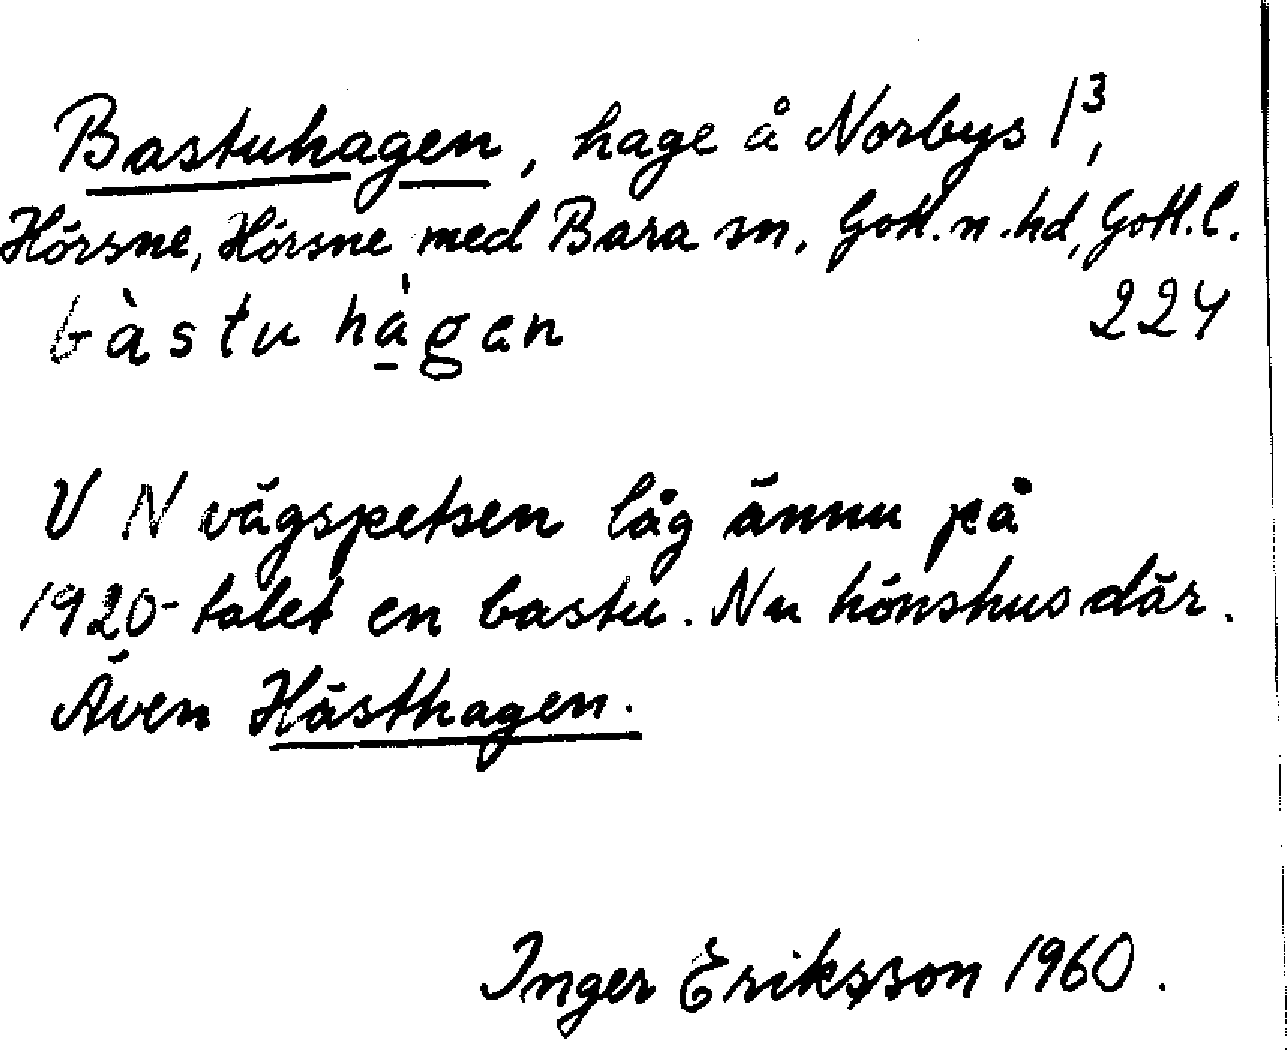 Bastuhagen, hage å Norbys 1³,
Hörsne, Hörsne med Bara sn. Gotl. n. hd, Gotl. l.
bàstuhàgen 224
V N vägspetsen låg ännu på
1920-talet en bastu. Nu hönshus där.
Även Hästhagen.
Inger Eriksson 1960.